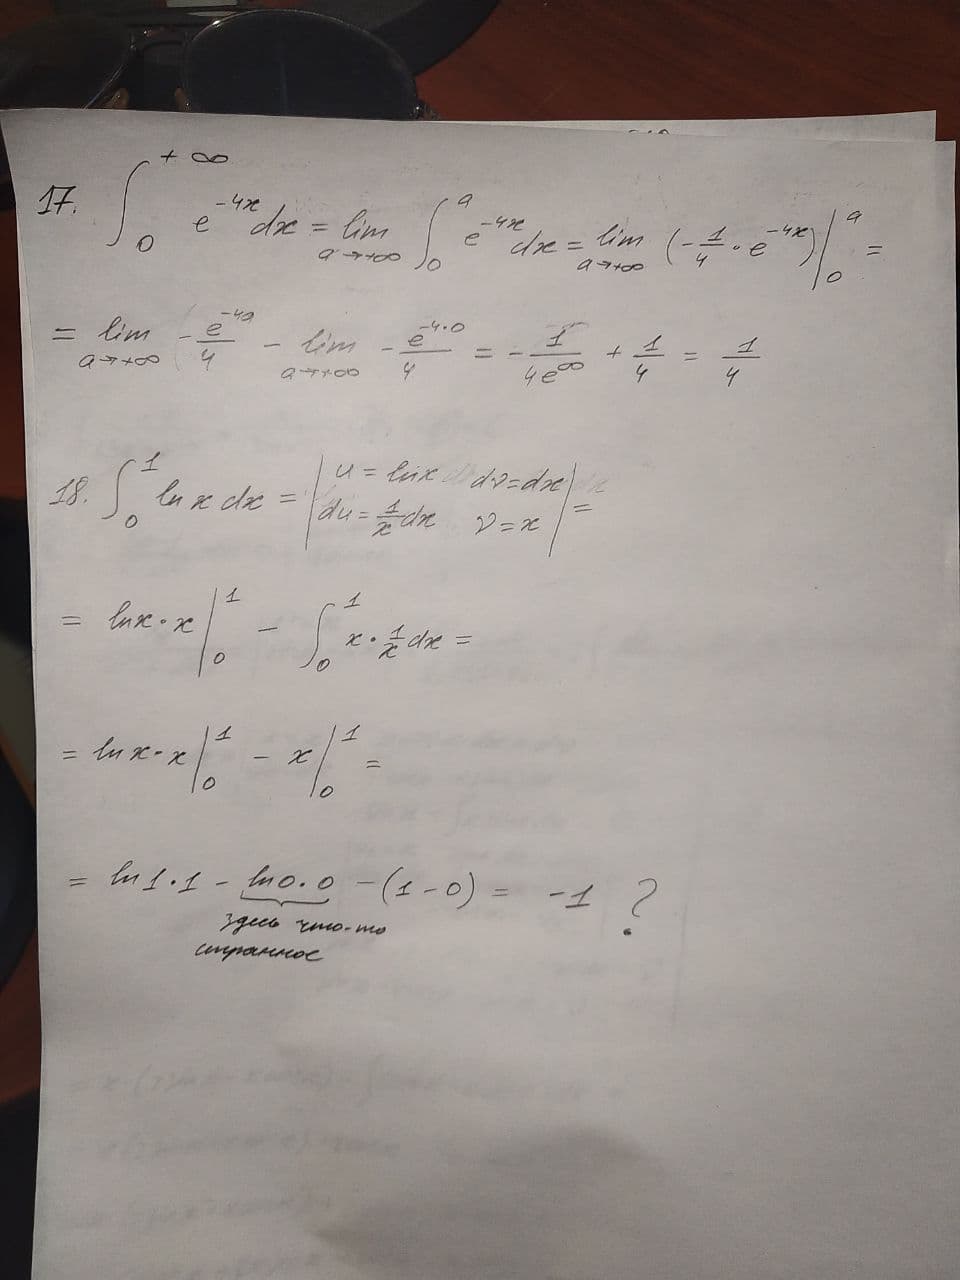 17. ∫₀^{+∞} e^{-4x} dx = lim_{a→+∞} ∫₀^a e^{-4x} dx = lim_{a→+∞} (-1/4 · e^{-4x}) |₀^a =
= lim_{a→+∞} - e^{-4a}/4 - lim_{a→+∞} - e^{-4·0}/4 = - 1/4e^∞ + 1/4 = 1/4
18. ∫₀^1 ln x dx = | u = ln x dv = dx
du = 1/x dx v = x | =
= ln x · x |₀^1 - ∫₀^1 x · 1/x dx =
= ln x · x |₀^1 - x |₀^1 =
= ln 1 · 1 - ln 0 · 0 - (1 - 0) = -1 ?
здесь что-то
странное